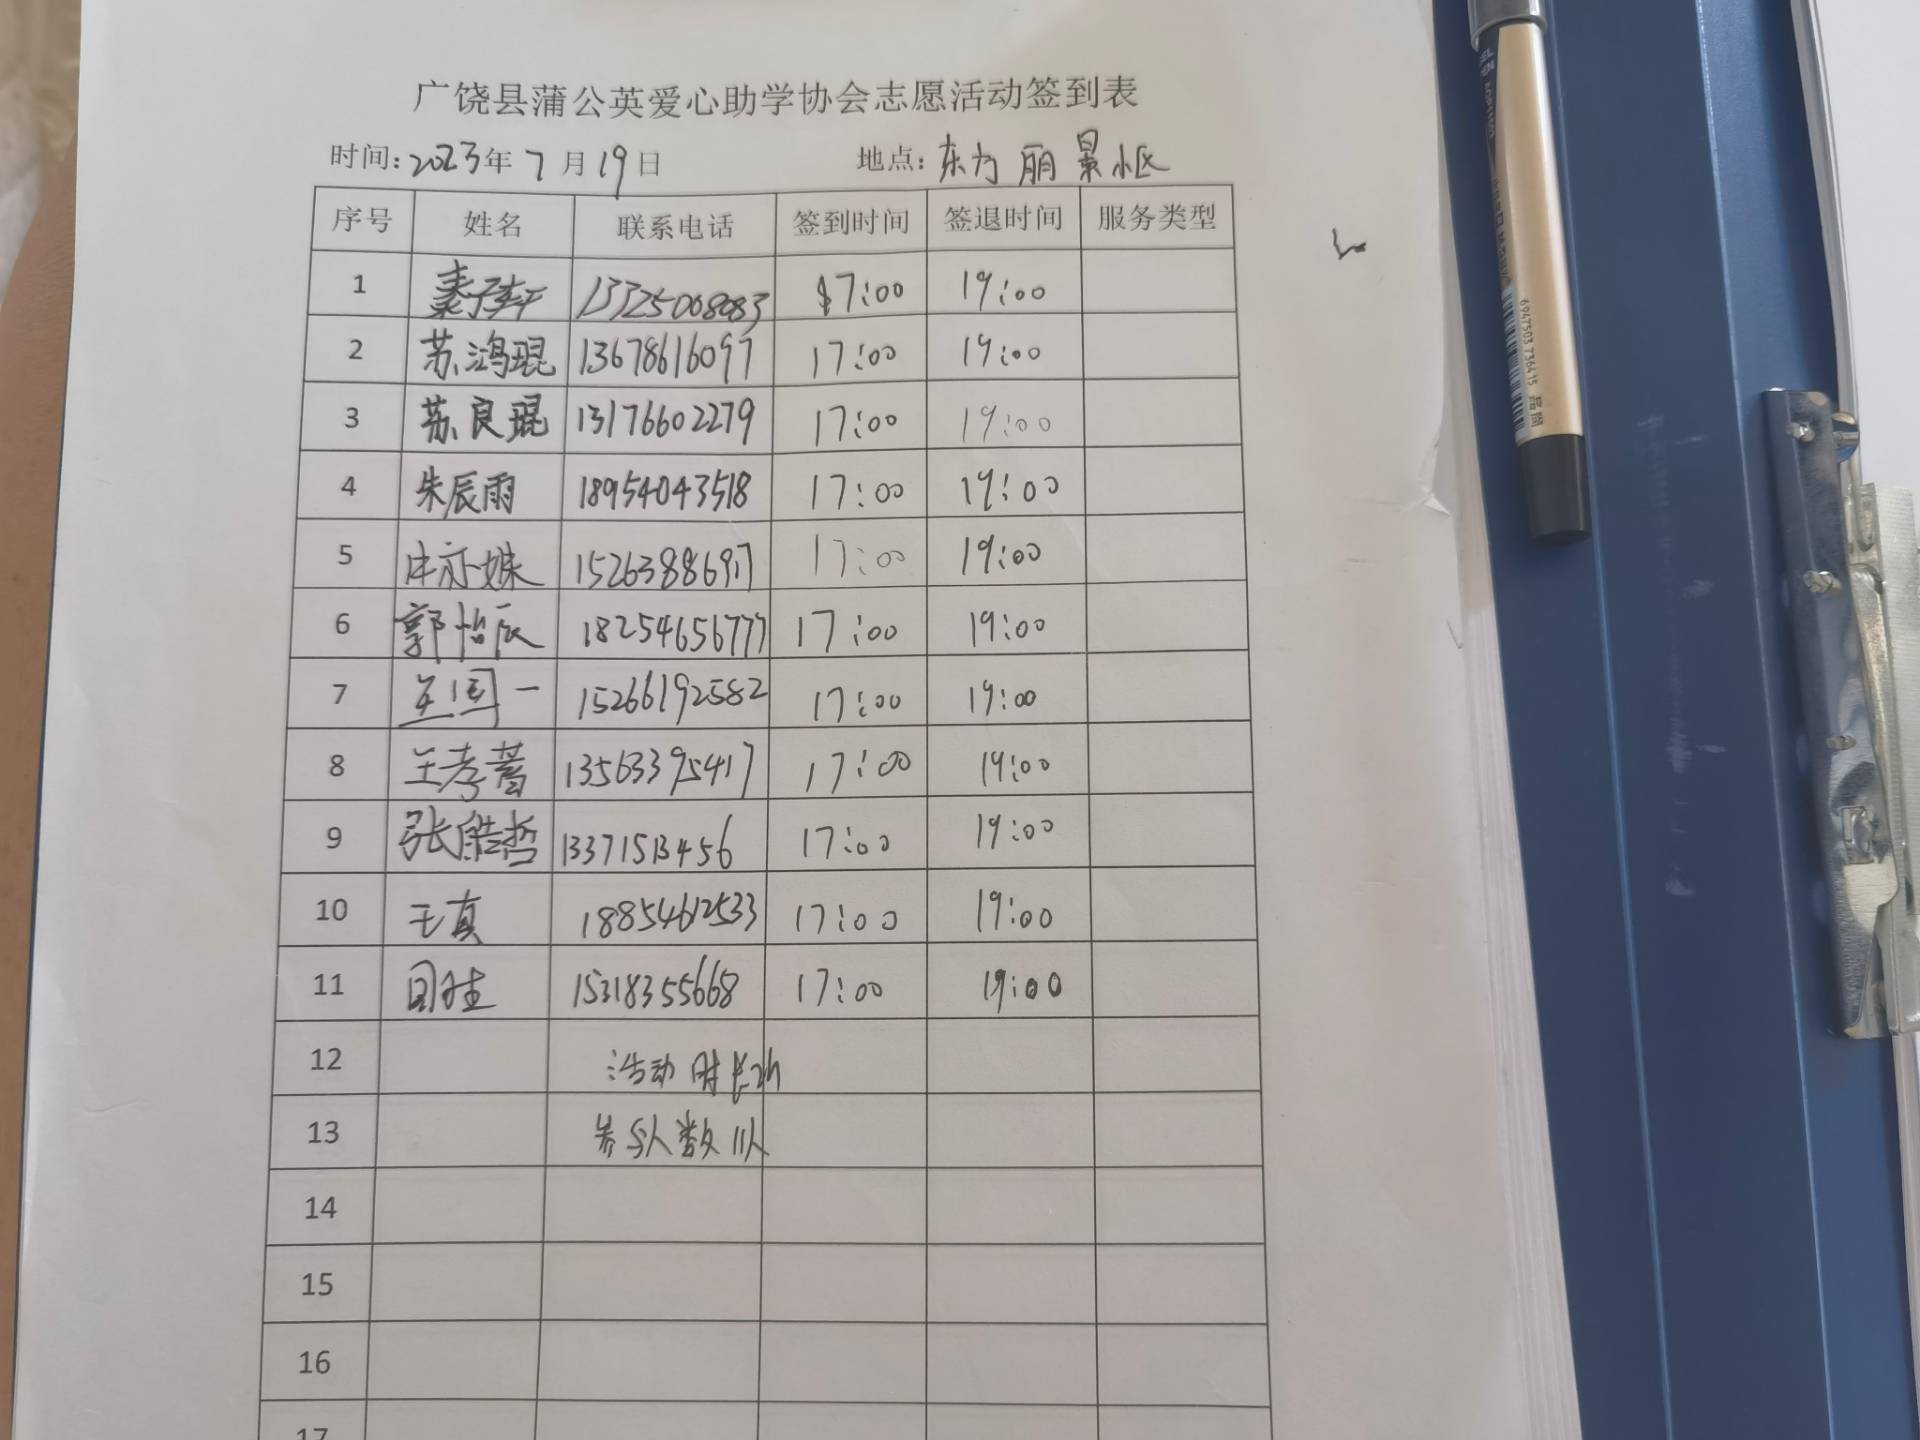 广饶县蒲公英爱心助学协会志愿活动签到表
时间:2023年7月19日 地点:东方丽景小区
序号 姓名 联系电话 签到时间 签退时间 服务类型
1 17:00 19:00
2 苏鸿琨 13678616097 17:00 19:00
3 苏良琨 13176602279 17:00 19:00
4 朱辰雨 18954043518 17:00 19:00
5 15263886917 17:00 19:00
6 郭怡辰 18254656777 17:00 19:00
7 15266192582 17:00 19:00
8 13563395417 17:00 19:00
9 张皓哲 13371513456 17:00 19:00
10 王真 18854612533 17:00 19:00
11 15318355668 17:00 19:00
12 活动时长2h
13 参与人数11人
14
15
16
17
6947503 736415